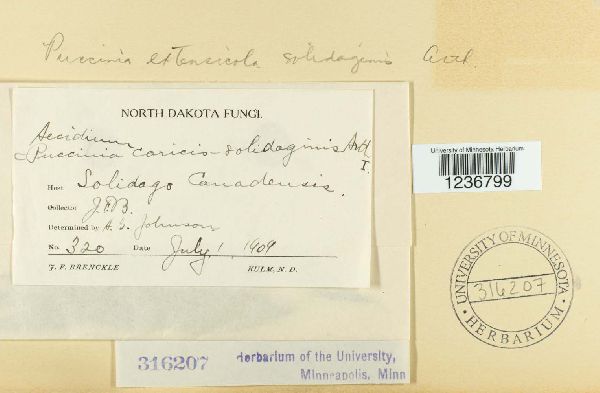 Puccinia extensicola solidaginis Arth.
NORTH DAKOTA FUNGI.
Aecidium
Puccinia caricis-solidaginis Arth
I.
Host Solidago Canadensis.
Collector J.F.B.
Determined by A. G. Johnson
No. 320 Date July, 1, 1909
J. F. BRENCKLE KULM, N. D.
University of Minnesota Herbarium
1236799
UNIVERSITY OF MINNESOTA
316207
HERBARIUM
316207 Herbarium of the University,
Minneapolis, Minn